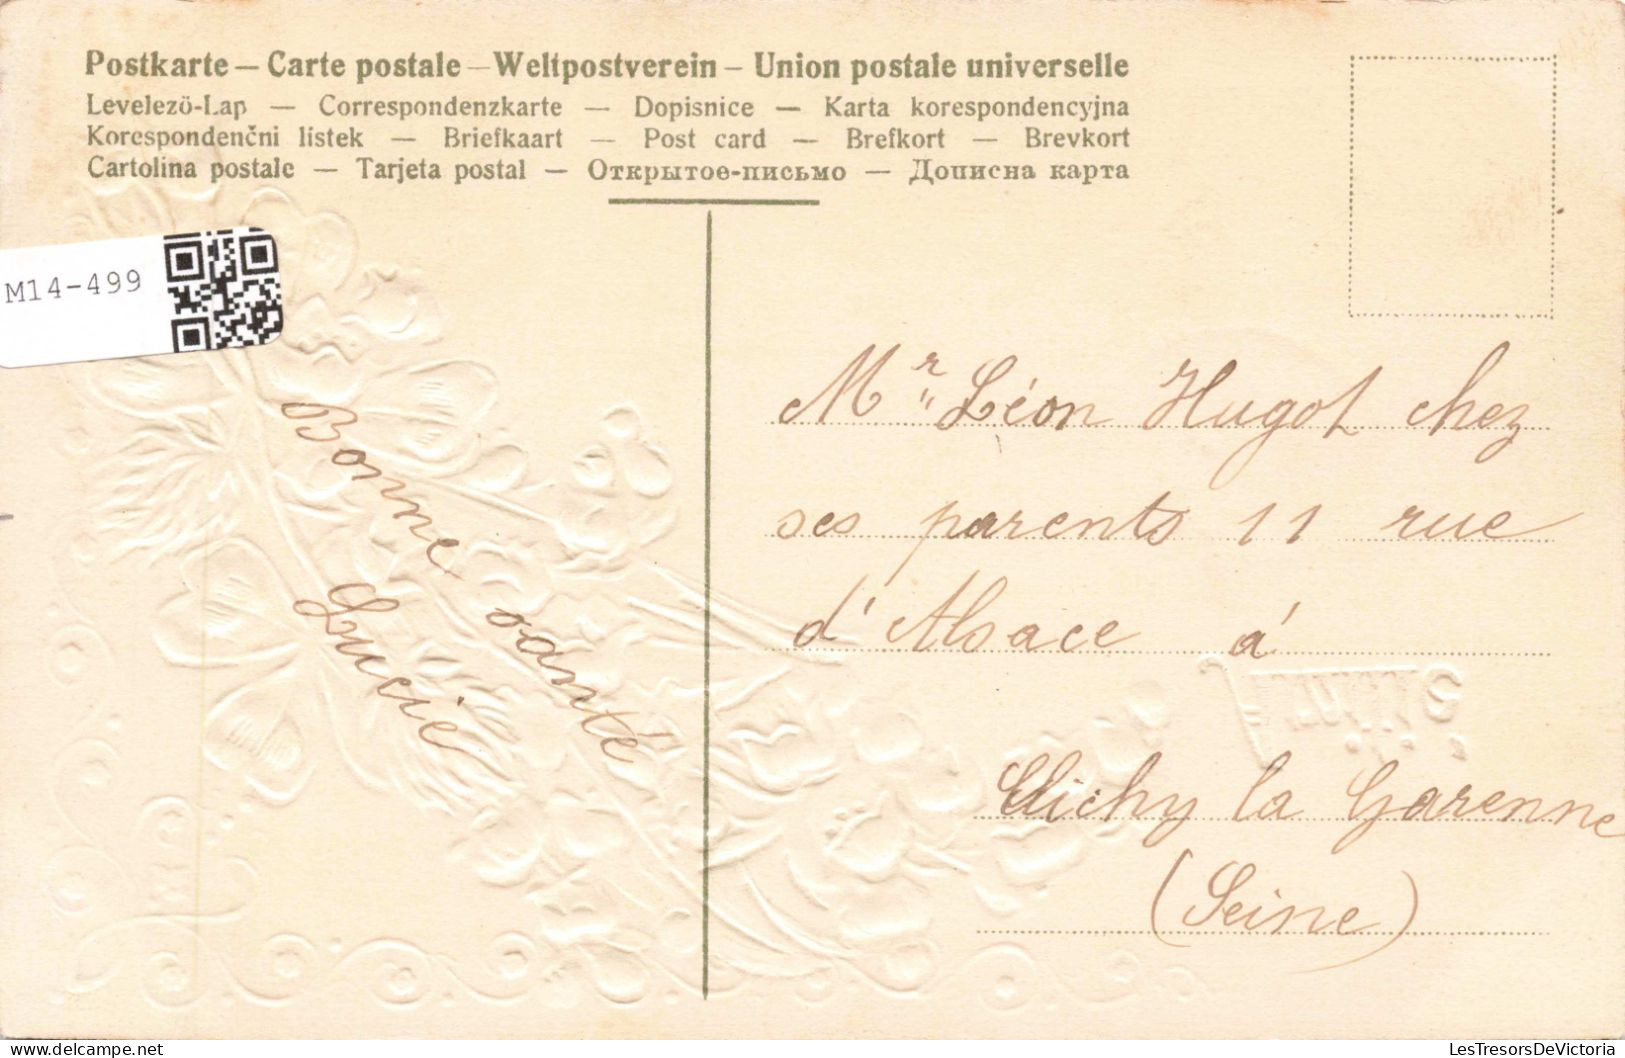 Postkarte – Carte postale – Weltpostverein – Union postale universelle
Levelezö-Lap — Correspondenzkarte — Dopisnice — Karta korespondencyjna
Korespondenčni listek — Briefkaart — Post card — Brefkort — Brevkort
Cartolina postale — Tarjeta postal — Открытое-письмо — Дописна карта
M14-499
Bonne santé
Lucie
Mr Léon Hugot chez
ses parents 11 rue
d'Alsace à
Clichy la Garenne
(Seine)
Amitiés
LesTresorsDeVictoria